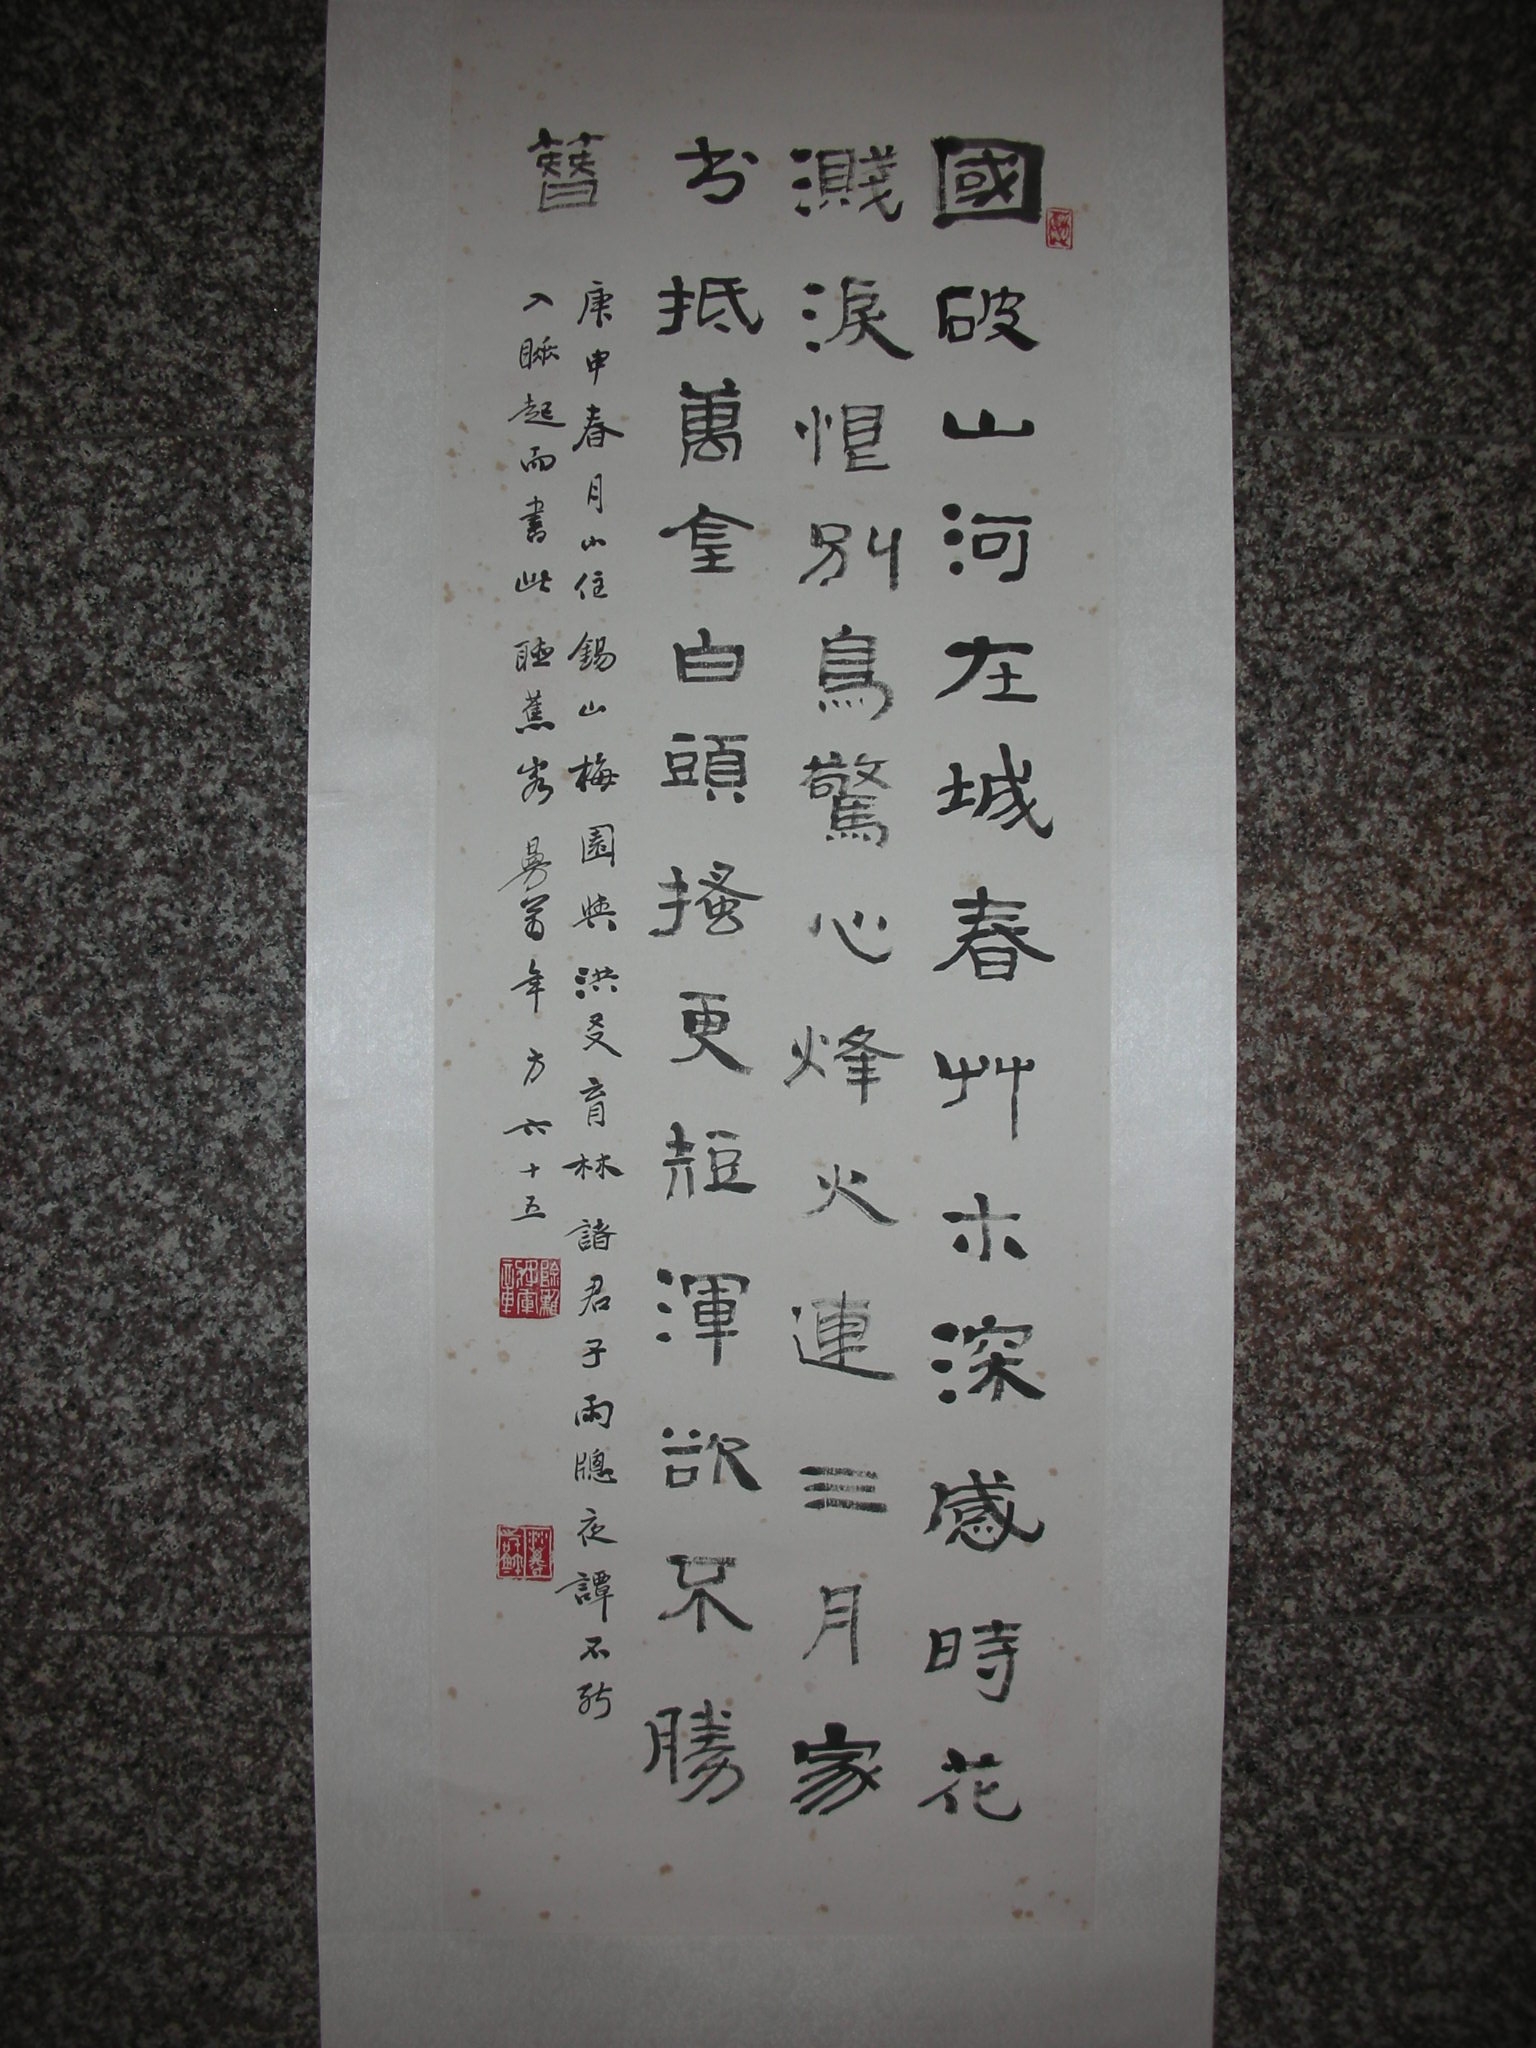 國破山河在城春艸木深感時花
濺淚恨別鳥驚心烽火連三月家
书抵萬金白頭搔更短渾欲不勝
簪
庚申春月小住錫山梅園與洪叟育林諸君子雨牕夜譚不能
入睡起而書此聽蕉客 年方六十五